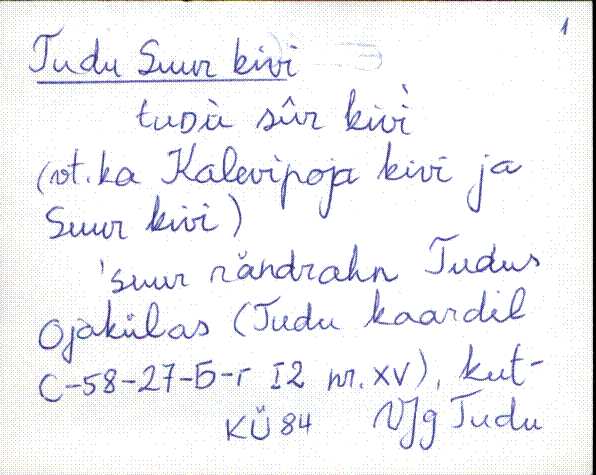 1
Tudu Suur kivi
tuᴅù sûr kivì
(vt. ka Kalevipoja kivi ja
Suur kivi)
'suur rändrahn Tudus
Ojakülas (Tudu kaardil
C-58-27-Б-г I2 nr. XV), kut-
KÜ 84 VJg Tudu